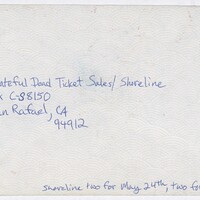 ateful Dead Ticket Sales/Shoreline
x C-S8150
an Rafael, CA
94912
shoreline two for may 24th, two fo